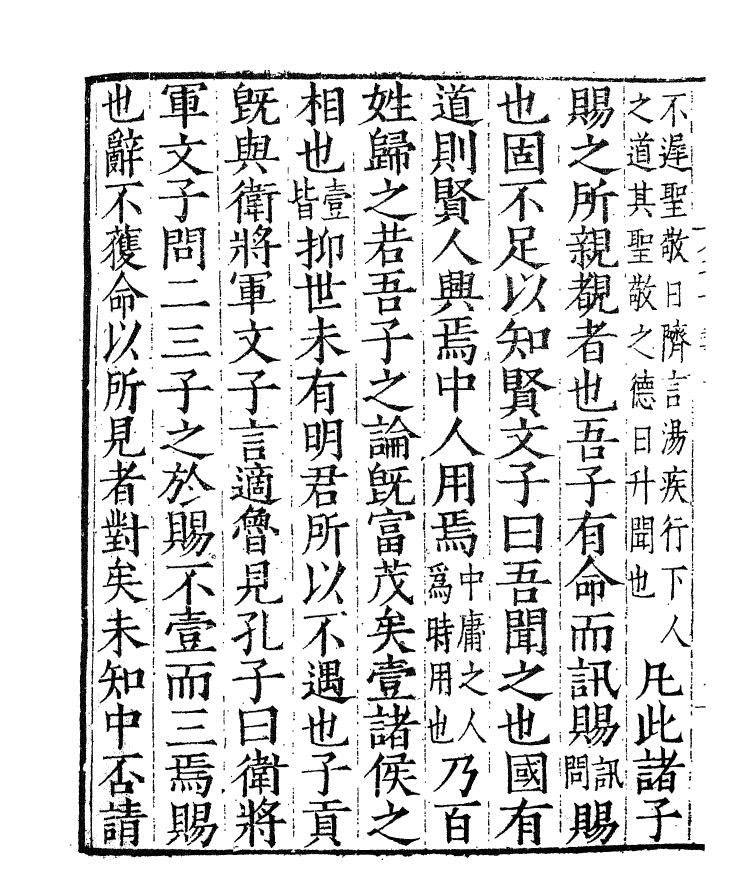 不遲聖敬日隮言湯疾行下人之道其聖敬之德日升聞也凡此諸子
賜之所親覩者也吾子有命而訊賜訊問賜
也固不足以知賢文子曰吾聞之也國有
道則賢人興焉中人用焉中庸之人爲時用也乃百
姓歸之若吾子之論旣富茂矣壹諸侯之
相也壹皆抑世未有明君所以不遇也子貢
旣與衛將軍文子言適魯見孔子曰衛將
軍文子問二三子之於賜不壹而三焉賜
也辭不獲命以所見者對矣未知中否請